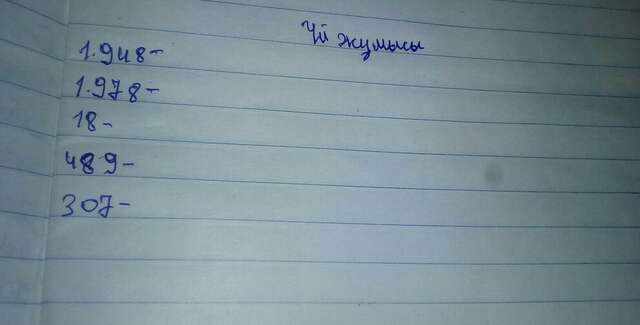 Үй жумысы
1.948-
1.978-
18-
489-
307-